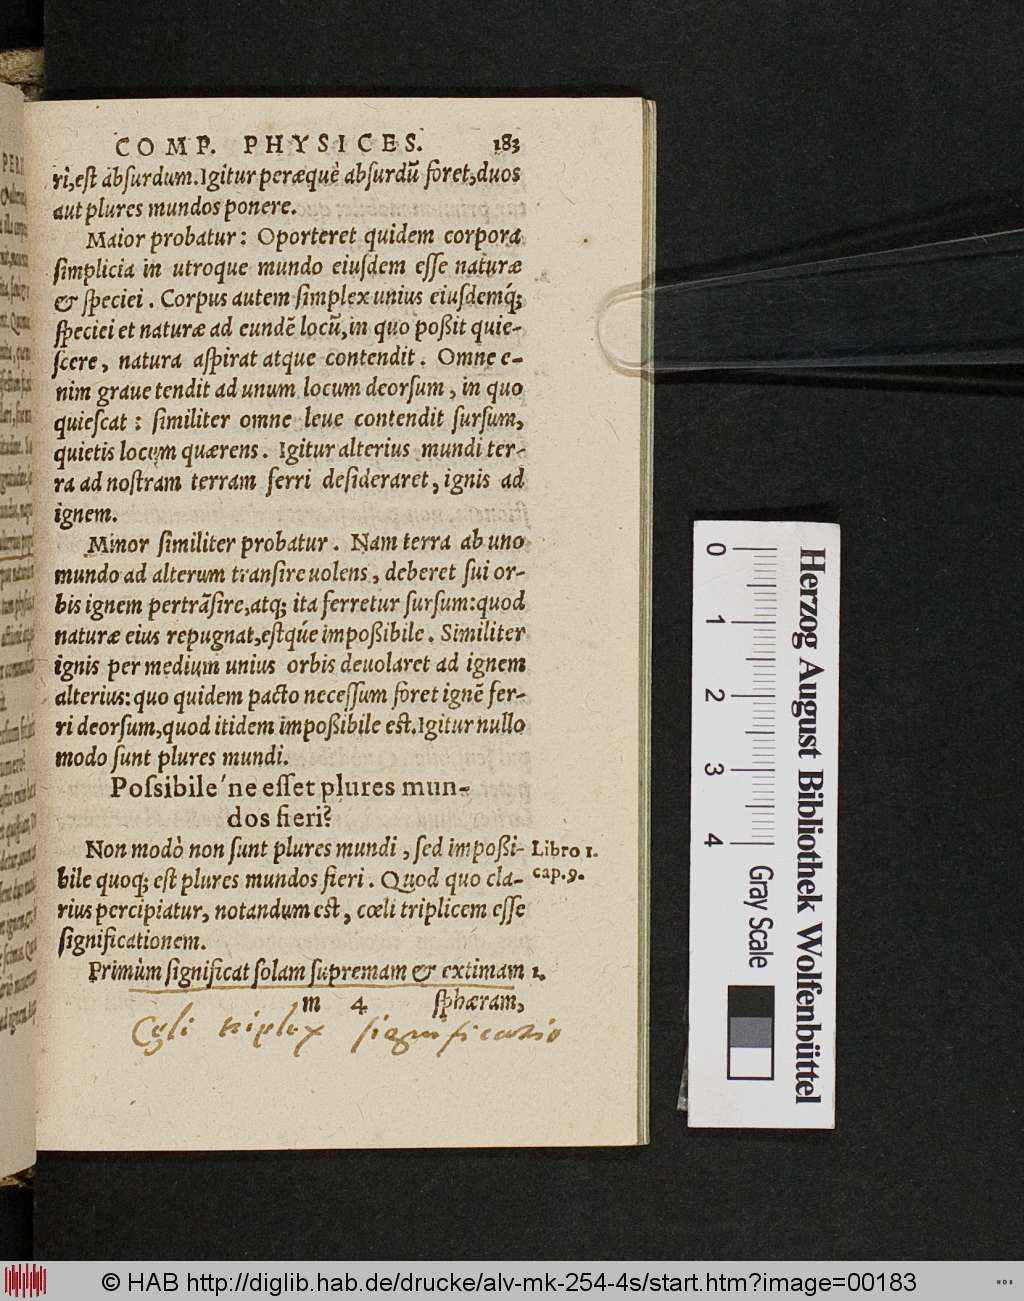 COMP. PHYSICES. 183
ri, est absurdum. Igitur peræquè absurdũ foret, duos
aut plures mundos ponere.
Maior probatur: Oporteret quidem corpora
simplicia in utroque mundo eiusdem esse naturæ
& speciei. Corpus autem simplex unius eiusdemq́;
speciei et naturæ ad eundẽ locũ, in quo poßit quie-
scere, natura aspirat atque contendit. Omne e-
nim graue tendit ad unum locum deorsum, in quo
quiescat: similiter omne leue contendit sursum,
quietis locum quærens. Igitur alterius mundi ter-
ra ad nostram terram ferri desideraret, ignis ad
ignem.
Minor similiter probatur. Nam terra ab uno
mundo ad alterum transire uolens, deberet sui or-
bis ignem pertrãsire, atq; ita ferretur sursum: quod
naturæ eius repugnat, estq́ue impoßibile. Similiter
ignis per medium unius orbis deuolaret ad ignem
alterius: quo quidem pacto necessum foret ignẽ fer-
ri deorsum, quod itidem impoßibile est. Igitur nullo
modo sunt plures mundi.
Possibile´ne esset plures mun-
dos fieri?
Non modò non sunt plures mundi, sed impoßi- Libro 1.
bile quoq; est plures mundos fieri. Quod quo cla- cap. 9.
rius percipiatur, notandum est, cœli triplicem esse
significationem.
Primùm significat solam supremam & extimam 1.
m 4 sphæram,
Cęli triplex significatio
Herzog August Bibliothek Wolfenbüttel
0 1 2 3 4 Gray Scale
© HAB http://diglib.hab.de/drucke/alv-mk-254-4s/start.htm?image=00183
WDB